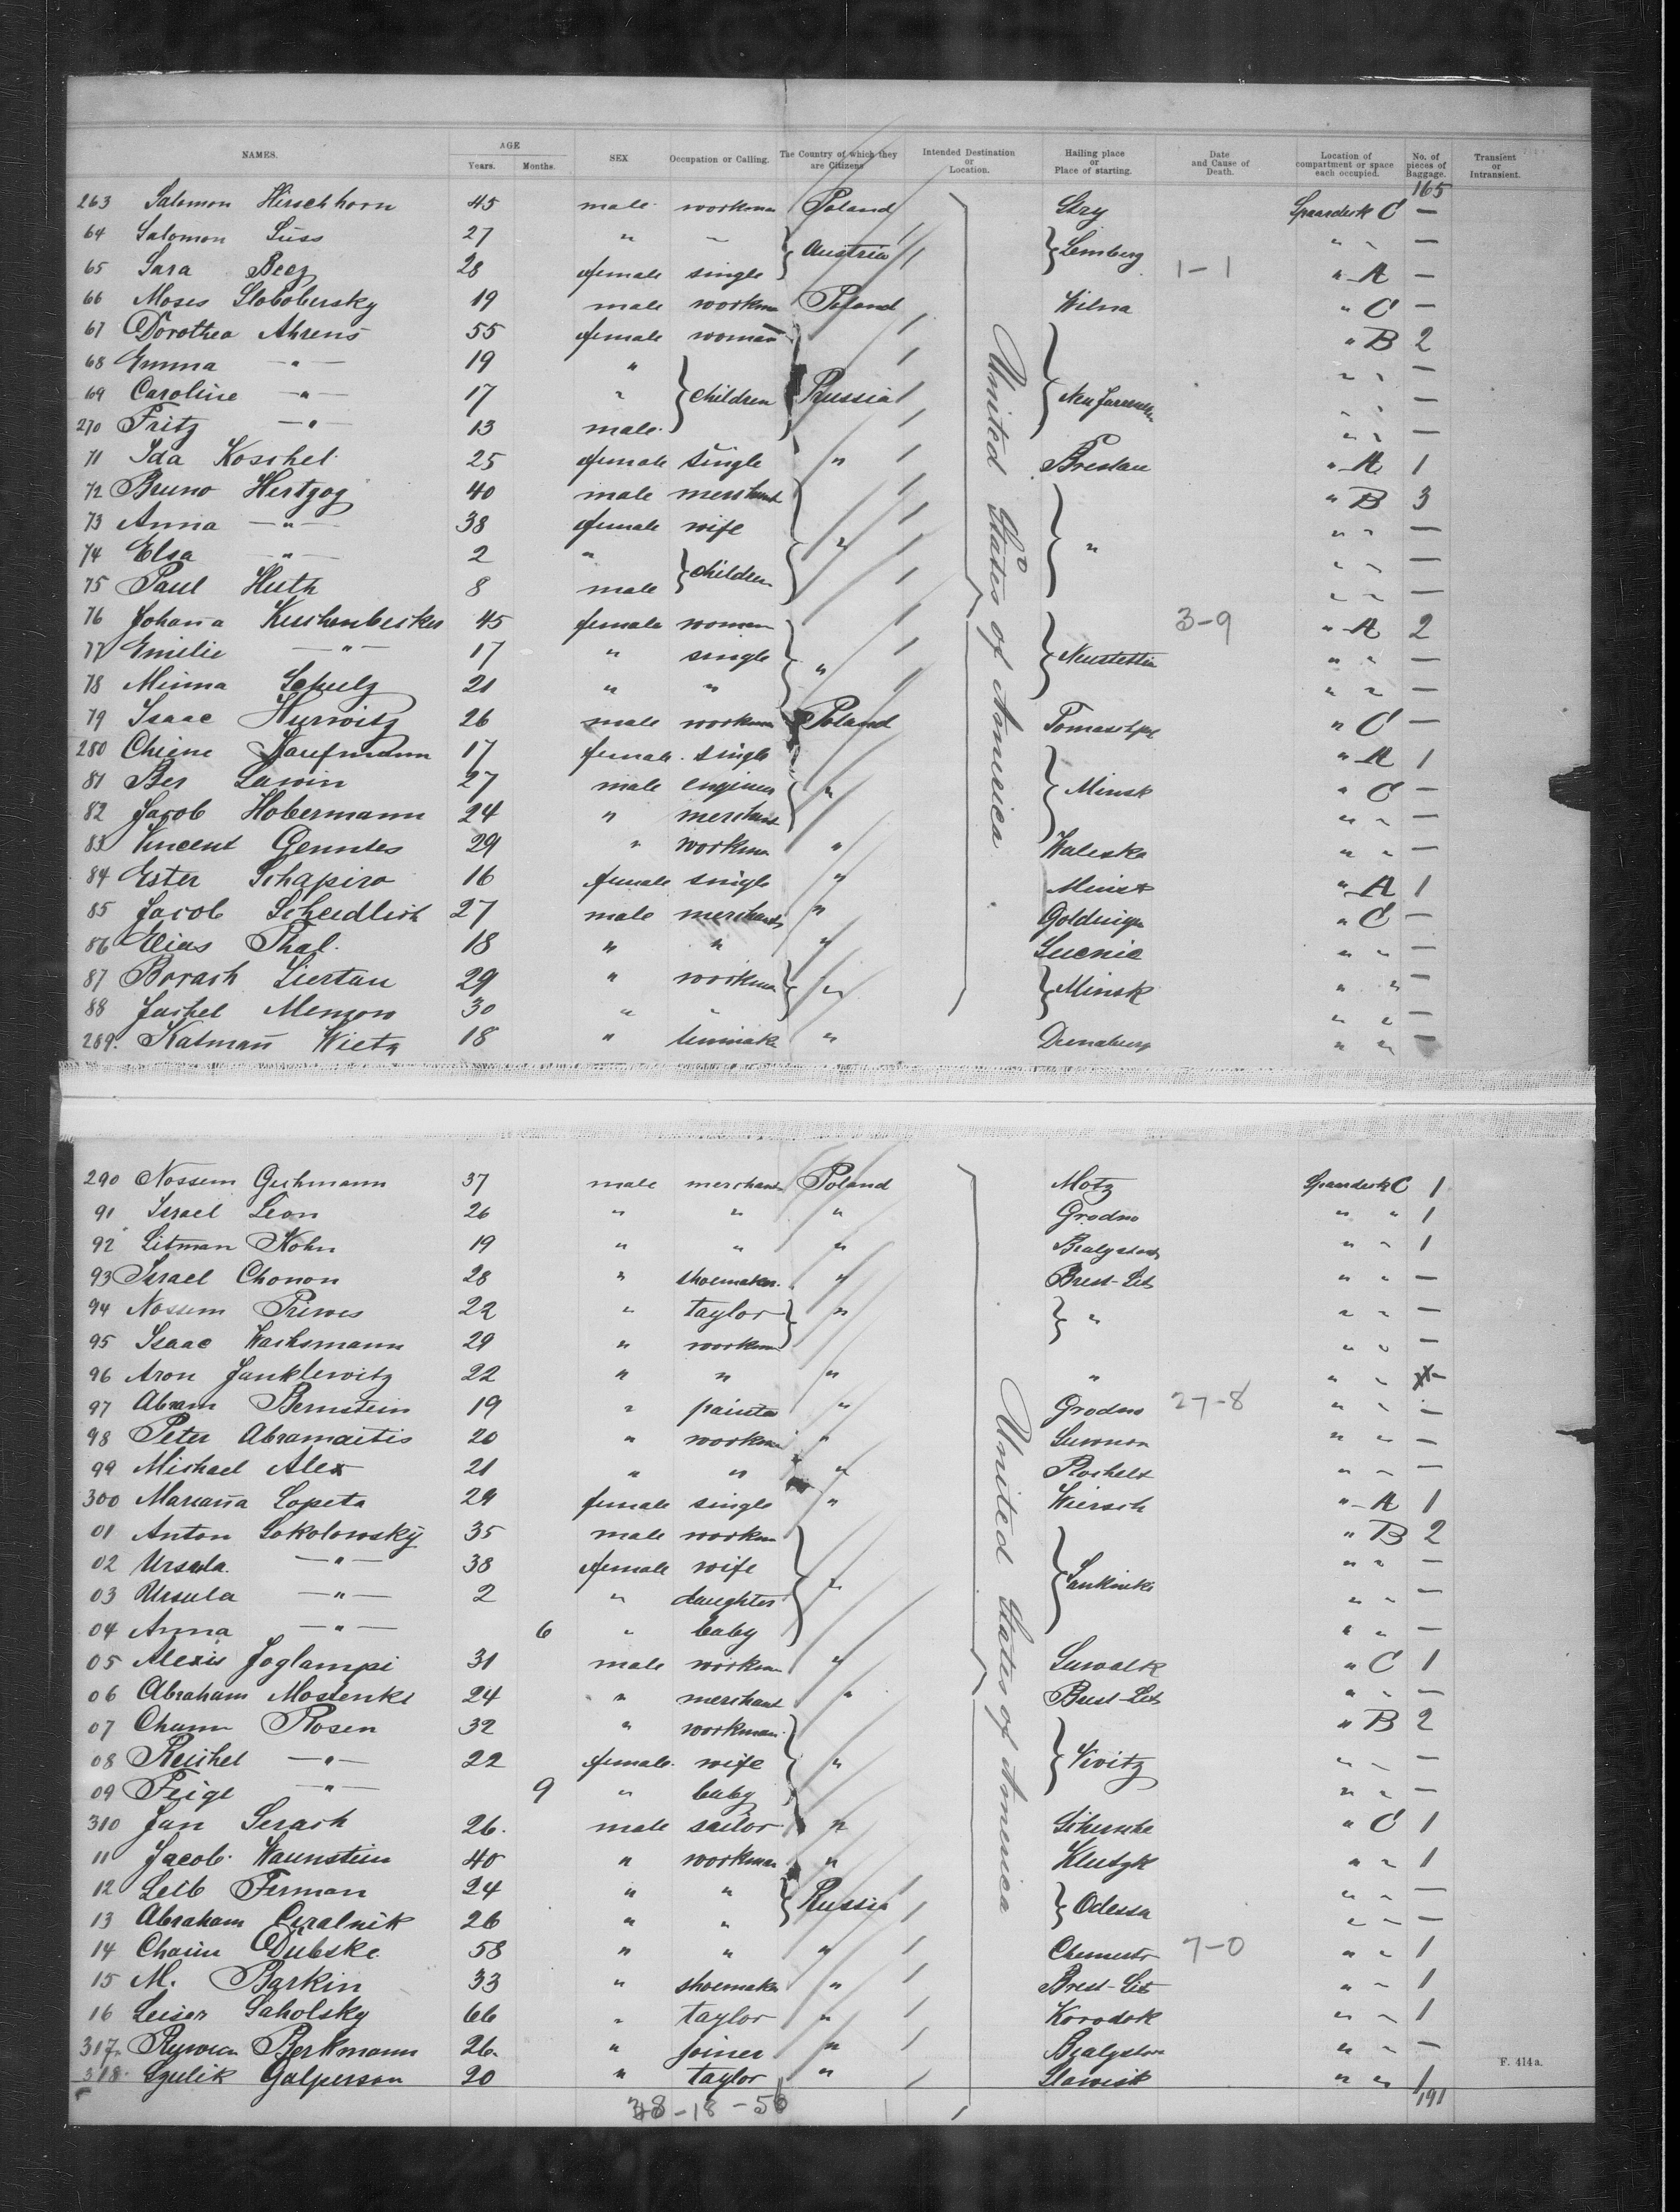 NAMES. AGE Years. Months. SEX Occupation or Calling. The Country of which they are Citizens Intended Destination or Location. Hailing place or Place of starting. Date and Cause of Death. Location of compartment or space each occupied. No. of pieces of Baggage. Transient or Intransient.
165
263 Salomon Hirschhorn 45 male workman Poland Stry C —
64 Salomon Süss 27 " " Austria Lemberg " " —
65 Sara 28 female single 1-1 " A —
66 Moses Slobobersky 19 male workman Poland Wilna " C —
67 Dorothea Ahrens 55 female woman " B 2
68 Emma —"— 19 " " " —
69 Caroline —"— 17 " children Russia " " —
270 Fritz —"— 13 male " " —
71 Ida Koschel 25 female single " Breslau " A 1
72 Bruno Hertzog 40 male merchant " B 3
73 Anna —"— 38 female wife " " " " —
74 Elsa —"— 2 " children " " —
75 Paul Huth 8 male " " —
76 Johana 45 female woman 3-9 " A 2
77 Emilie —"— 17 " single " Neustettin " " —
78 Minna Schulz 21 " " " " —
79 Isaac Hurwitz 26 male workman Poland " C —
280 Chiene Kaufmann 17 female single " A 1
81 Ber Lawin 27 male engineer " Minsk " C —
82 Jacob Hobermann 24 " merchant " " —
83 Vincent Genntes 29 " workman " Waleska " " —
84 Ester Schapiro 16 female single " Minsk " A 1
85 Jacob Scheidlish 27 male merchant " " C —
86 Elias Thal 18 " " " " " —
87 Borach Liertau 29 " workman " Minsk " " —
88 30 " " " " —
289. Katmañ Wietz 18 " " Dunaburg " " —
United States of America
290 Nossem Guhmann 37 male merchant Poland Motz C 1
91 Israel Leon 26 " " " Grodno " " 1
92 Litman Kohn 19 " " " Bialystock " " 1
93 Israel Chonon 28 " shoemaker " Brest-Lit " " —
94 Nossem Priwes 22 " taylor " " " " —
95 Isaac Wachsmann 29 " workman " " —
96 Aron Janklewitz 22 " " " " " "
97 Abram Bernstein 19 " painter " Grodno 27-8 " " —
98 Peter Abramaitis 20 " workman " " " —
99 Michael Alex 21 " " " " " —
300 Mariaña Lopeta 29 female single " Wiersch " A 1
01 Anton Sokolowsky 35 male workman " B 2
02 Ursula —"— 38 female wife " " " —
03 Ursula —"— 2 " daughter " " —
04 Anna —"— 6 " baby " " —
05 Alexis Joglampi 31 male workman " Suwalk " C 1
06 Abraham Mostenki 24 " merchant " Brest-Lit " " —
07 Chunn Rosen 32 " workman " B 2
08 Reichel —"— 22 female wife " " " —
09 Feige —"— 9 " baby " " —
310 Jan Serach 26. male sailor " " C 1
11 Jacob Waunstein 40 " workman " " " 1
12 Leib Ferman 24 " " Russia Odessa " " —
13 Abraham Ciralnik 26 " " " " —
14 Chaim Dubske 58 " " " 7-0 " " 1
15 M. Barkin 33 " shoemaker " Brest-Lit " " 1
16 Leiser Saholsky 66 " taylor " Korodok " " 1
317. Berkmann 26. " joiner " Bialystok " " —
318. Szulik Galperson 20 " taylor " " " 1
United States of America
F. 414 a.
191
38-18-56